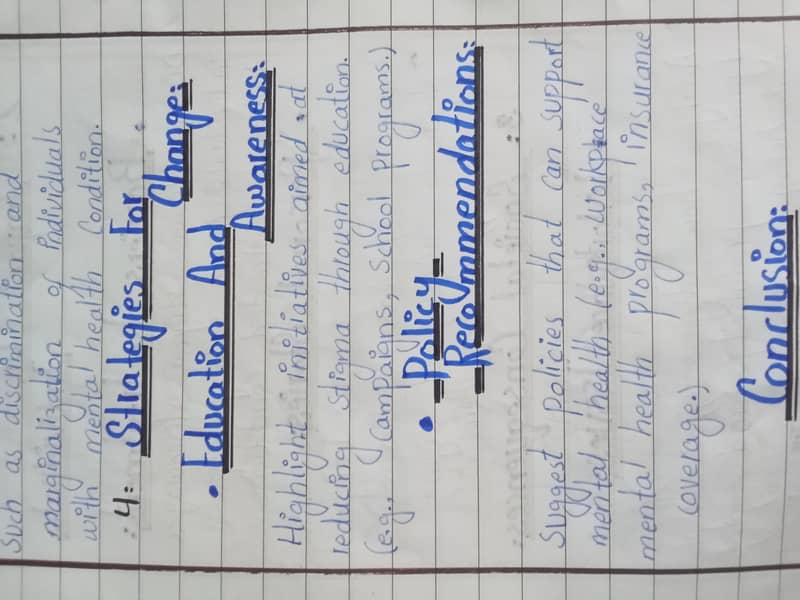 Such as discrimination and
marginalization of individuals
with mental health condition.
4: Strategies For
Change:
• Education And
Awareness:
Highlight initiatives aimed at
reducing stigma through education.
(e.g., campaigns, school programs.)
• Policy
Recommendations:
Suggest policies that can support
mental health (e.g., workplace
mental health programs, insurance
coverage.)
Conclusion: